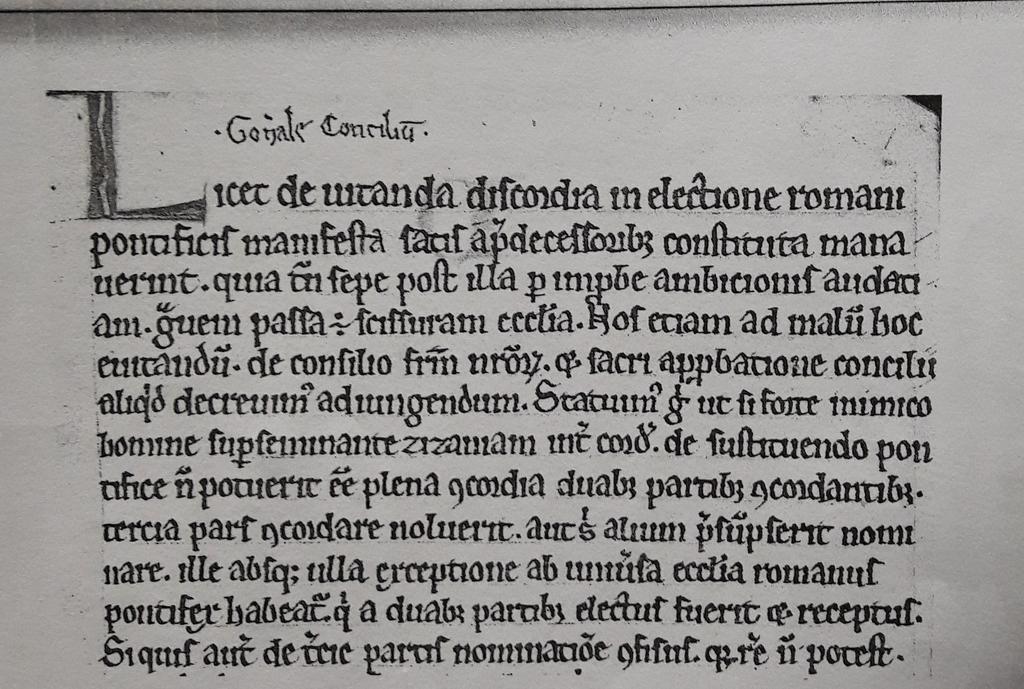 · Gen̄ale Conciliū ·
Licet de uitanda discordia in electione romani
pontificis manifesta satis a p̄decessorib; constituta mana
uerint. quia tn̄ sepe post illa ꝑ imꝓbe ambicionis audaci
am. gͣuem passa ÷ scissuram ecclīa. Nos etiam ad malū hoc
euitandū. de consilio frm̄ nr̄oꝝ. ⁊ sacri apꝓbatione concilii
aliqͥd decreuimꝰ adiungendum. Statuimꝰ gͥ ut si forte inimico
homine suꝑseminante zizaniam int̄ cord̄. de sustituendo pon
tifice n̄ potuerit ēē plena ꝯcordia duab; partib; ꝯcordantib;.
tercia pars ꝯcordare noluerit. aut sͥ alium p̄sūpserit nomi
nare. ille absq; ulla exceptione ab uniūsa ecclīa romanus
pontifex habeat̄. qͥ a duab; partib; electus fuerit ⁊ receptus.
Siquis aut̄ de t̄cie partis nominatiōe ꝯfisus. q; rē n̄ potest.